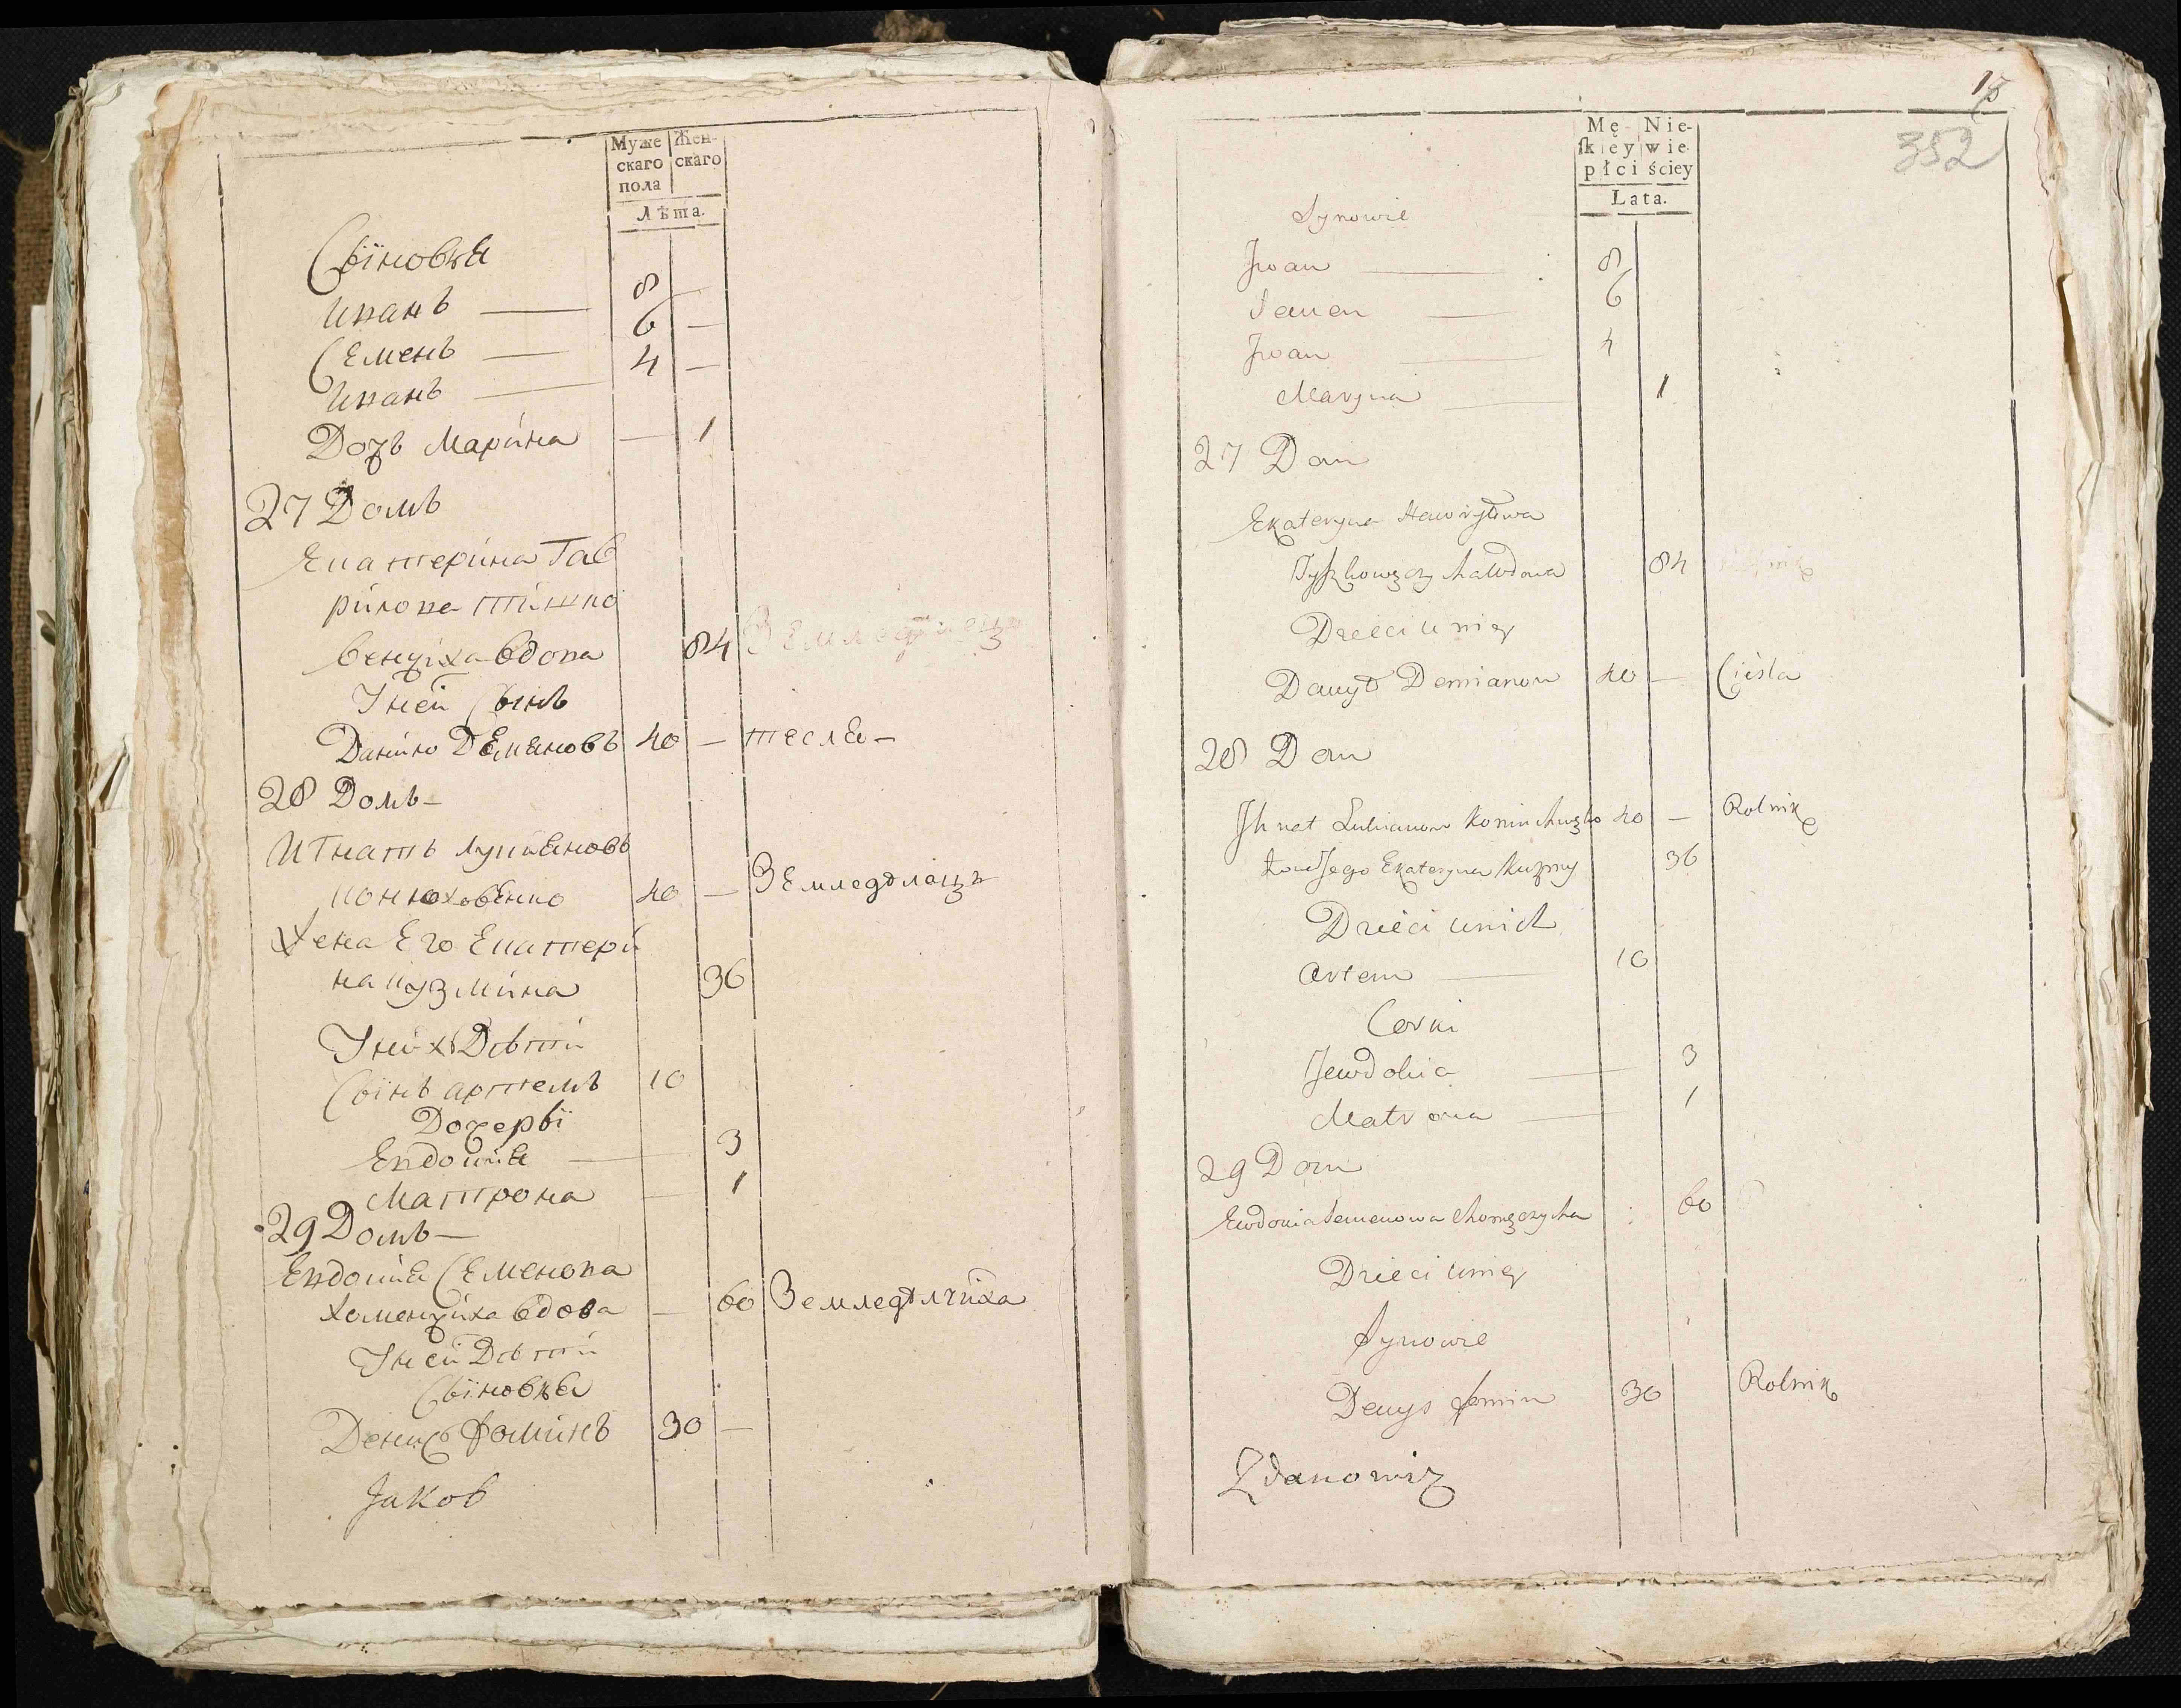 Муже Жен-
скаго скаго
пола
Лѣта.
Сыновья
Иванъ — 8 —
Семенъ — 6 —
Иванъ — 4 —
Дочъ Марина — 1
27 Домъ
Екатерина Гав
рилова Тишко
венчиха вдова 84
У ней Сынъ
Данило Демяновъ 40 — тесля —
28 Домъ —
Игнатъ Лукяновъ
Конюховенко 40 — Земледѣлецъ
Жена Его Екатери
на Кузмина 36
У них Дѣти
Сынъ артемъ 10
Дочеры
Евдокия — 3
Матрона — 1
29 Домъ —
Евдокия Семенова
Хоменчиха вдова — 60 Земледѣлчиха
У ней Дѣти
Сыновья
Денисъ Фоминъ 30 —
Jаков
18
352
Mę- Nie-
ſkiey wie-
płci ściey
Lata.
Synowie
Jwan — 8
Semen — 6
Jwan — 4
Maryna — 1
27 Dom
Ekateryna Hawryłowa
84
Dzieci u niey
Danyło Demianow 40 — Cieśla
28 Dom
Jhnat Lukianow 40 — Rolnik
Żona Jego Ekateryna Kuzmy 36
Dzieci u nich
Artem — 10
Corki
Jewdokia — 3
Matrona — 1
29 Dom
Ewdokia Semenowa Chomęczycha 60
Dzieci u niey
Synowie
Denys Fomin 30 Rolnik
Zdanowicz